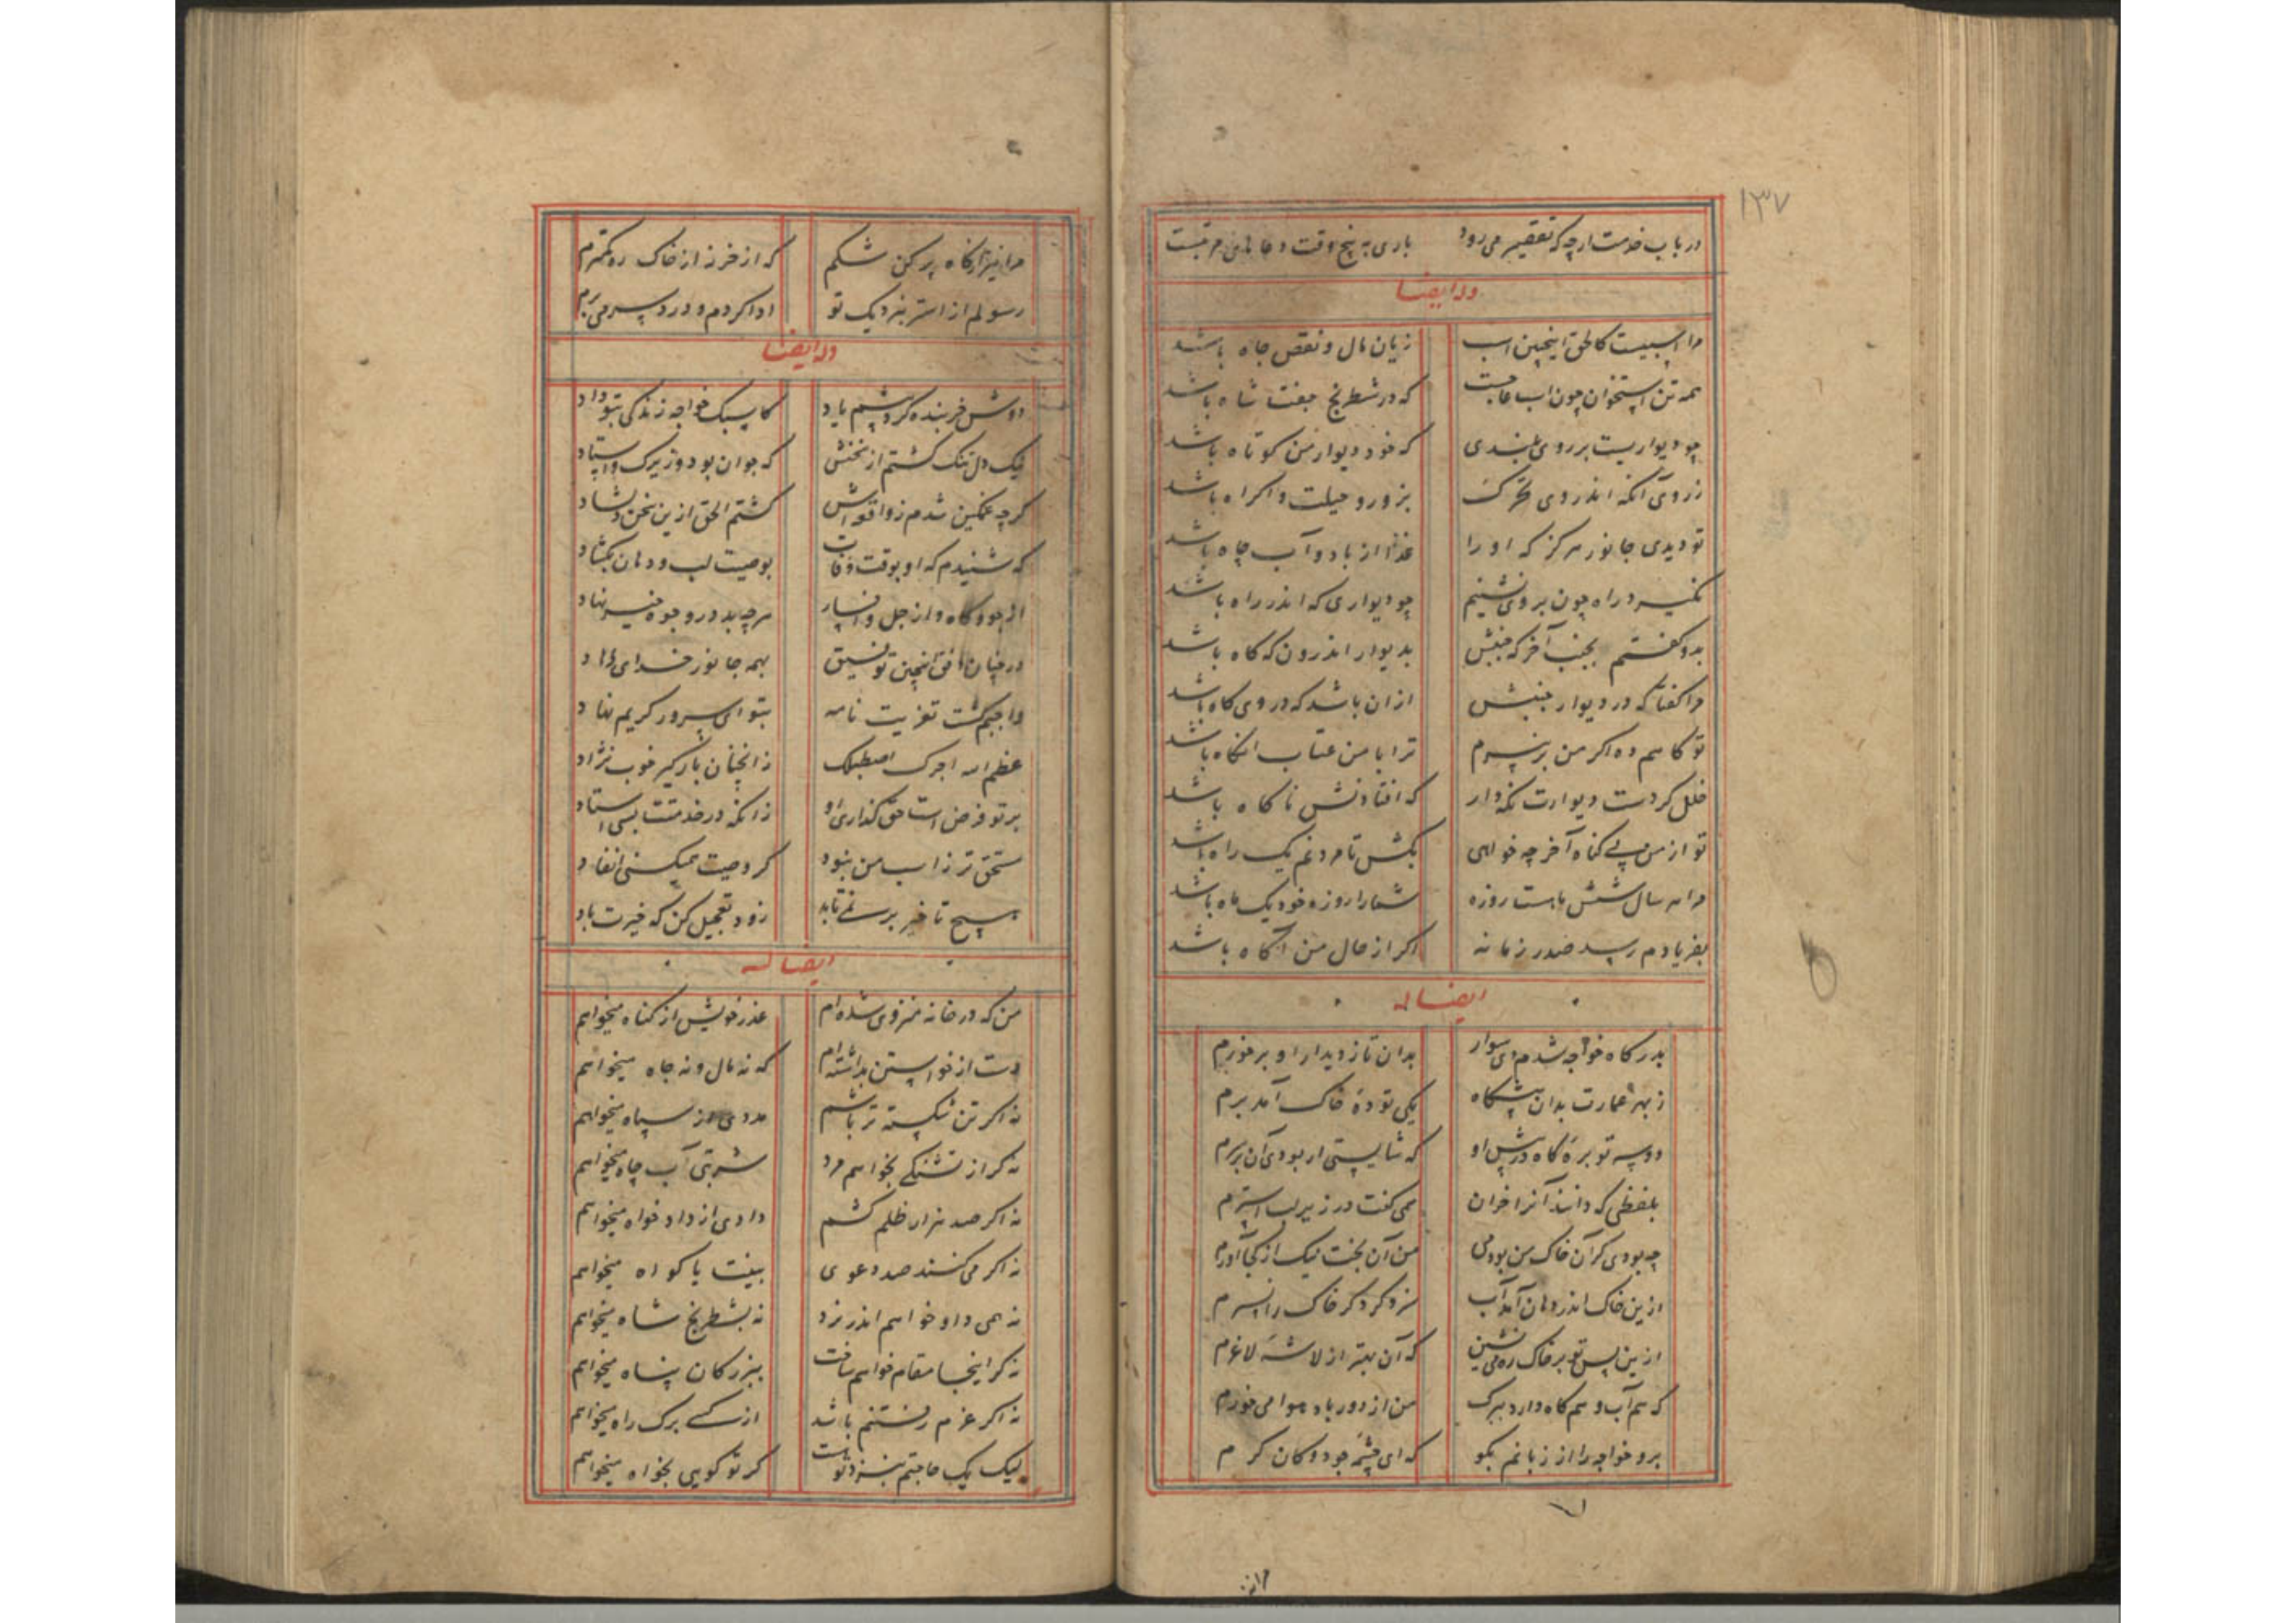 ۱۳۷
در باب خدمت ارچه که تقصیر می‌رود باری به پنج وقت دعاهای مرتبست
وله ایضا
مرا اسپیست کالحق اینچنین اسب زیان مال و نقص جاه باشد
همه تن استخوان چون اسب عاجست که در شطرنج جفت شاه باشد
چو دیواریست بر روی بلندی که خود دیوار من کوتاه باشد
ز روی آنکه اندر وی تحرک بزور و حیلت و اکراه باشد
تو دیدی جانور هرگز که او را غذا از باد و آب چاه باشد
نخسبد در راه چون بر وی نشینم چو دیواری که اندر راه باشد
بدو گفتم بجنب آخر که جنبش بدیوار اندرون که گاه باشد
مرا گفتا که در دیوار جنبش ازان باشد که در وی کاه باشد
تو کاهم ده اگر من برنپرم ترا با من عتاب آنگاه باشد
خلل کردست دیوارت نگه دار که افتادنش ناگاه باشد
تو از من بی گناه آخر چه خواهی بکش تا مردنم یک راه باشد
مرا هر سال شش ماهست روزه شما را روزه خود یک ماه باشد
بفریادم رسد صدر زمانه اگر از حال من آگاه باشد
ایضا له
بدرگاه خواجه شدم دی سوار بدان تا ز دیدار او برخورم
ز بهر عمارت بدان پیشگاه یکی تودهٔ خاک آمد برم
دو سه توبره کاه در پیش او که شایستی ار بودی آن بر سرم
بلفظی که دانند آنرا خران همی گفت در زیر لب استرم
چه بودی گر آن خاک من بودمی من آن بخت نیک از کجا آورم
ازین خاک اندر دهان آمد آب سزد گر دگر خاک را نسپرم
ازین پس تو بر خاک ره می نشین که آن بهتر از لاشهٔ لاغرم
که هم آب و هم کاه دارد ببرگ من از دور باد هوا می خورم
برو خواجه را از زبانم بگو که ای چشمه جود و کان کرم
مرا نیز از کاه پر کن شکم که از خر نز از خاک ره کمترم
رسولم از استر بنزدیک تو ادا کردم و درد سر می برم
وله ایضا
دوش خربنده کرد پیشم یاد کاسبک خواجه زندگی بتو داد
نیک دل تنگ گشتم از سخنش که جوان بود و زیرک و استاد
گرچه غمگین شدم ز واقعه اش گشتم الحق ازین سخن دلشاد
که شنیدم که او بوقت وفات بوصیت لب و دهان بگشاد
از جو و کاه و از جل و افسار هرچه بد در وجوه خیر نهاد
در چنان اینچنین توفیق بهمه جانور خدای دهاد
واجبم گشت تعزیت نامه بتو ای سرور کریم نهاد
عظم الله اجرک اصطبلک ز آنچنان بارگیر خوب نژاد
بر تو فرض است حق گذاری او زانکه در خدمتت بسی استاد
مستحق تر ز اسب من نبود گر وصیت همیکنی انفاد
هیچ تاخیر بر نمی تابد زود تعجیل کن که خیرت باد
ایضا له
من که در خانه منزوی شده ام عذر خویش از گناه میخواهم
دست از خواستن بداشته ام که نه مال و نه جاه میخواهم
نه اگر تن شکسته تر باشم مددی از سپاه میخواهم
نه گر از تشنگی بخواهم مرد شربتی آب چاه میخواهم
نه اگر صد هزار ظلم کشم دادی از دادخواه میخواهم
نه اگر می کنند صد دعوی بینت یا گواه میخواهم
نه همی داو خواهم اندر نرد نه بشطرنج شاه میخواهم
نه گر اینجا مقام خواهم ساخت ببزرگان پناه میخواهم
نه اگر عزم رفتنم باشد از کسی برگ راه میخواهم
لیک یک حاجتم بنزد تو هست گر تو گویی بخواه میخواهم